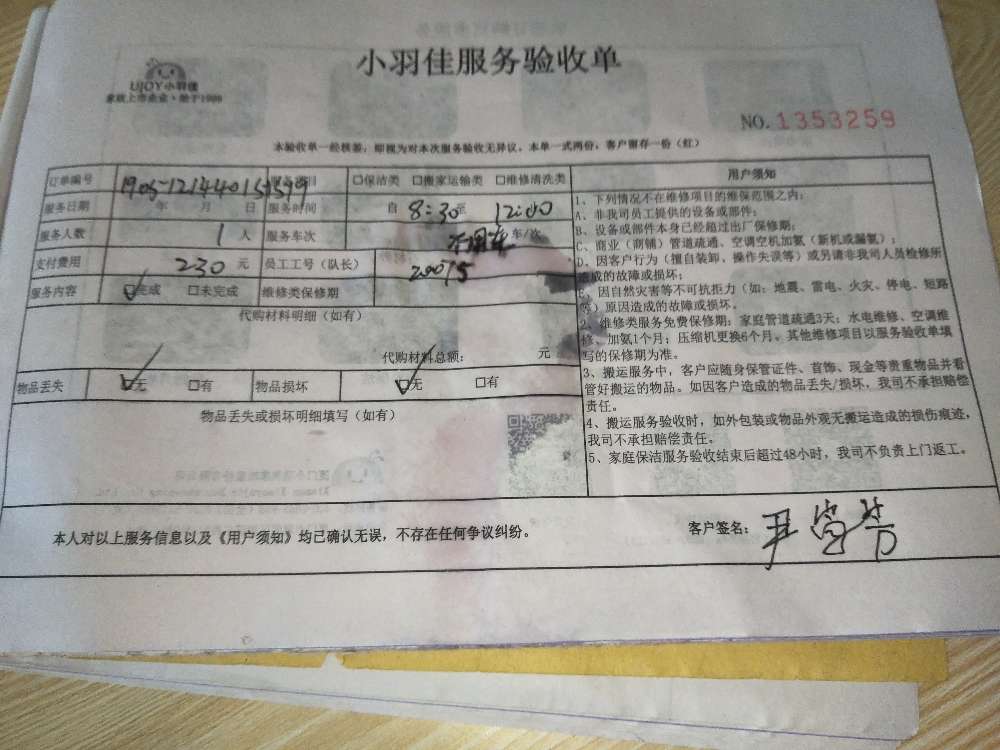 小羽佳服务验收单
UJOY小羽佳
家政上市企业·始于1998
NO.1353259
本验收单一经核签，即视为对本次服务验收无异议，本单一式两份，客户留存一份（红）
订单编号 服务项目 □保洁类 □搬家运输类 □维修清洗类
服务日期 年 月 日 服务时间 自 8:30 至 12:00
服务人数 1 人 服务车次 车/次
支付费用 230 元 员工工号（队长） 20075
服务内容 ☑完成 □未完成 维修类保修期
代购材料明细（如有）
代购材料总额： 元
物品丢失 ☑无 □有 物品损坏 ☑无 □有
物品丢失或损坏明细填写（如有）
用户须知
1、下列情况不在维修项目的维保范围之内：
A、非我司员工提供的设备或部件；
B、设备或部件本身已经超过出厂保修期；
C、商业（商铺）管道疏通、空调空机加氨（新机或漏氨）；
D、因客户行为（擅自装卸、操作失误等）或另请非我司人员检修所
造成的故障或损坏；
E、因自然灾害等不可抗拒力（如：地震、雷电、火灾、停电、短路
等）原因造成的故障或损坏。
2、维修类服务免费保修期：家庭管道疏通3天；水电维修、空调维
修、加氨1个月；压缩机更换6个月。其他维修项目以服务验收单填
写的保修期为准。
3、搬运服务中，客户应随身保管证件、首饰、现金等贵重物品并看
管好搬运的物品。如因客户造成的物品丢失/损坏，我司不承担赔偿
责任。
4、搬运服务验收时，如外包装或物品外观无搬运造成的损伤痕迹，
我司不承担赔偿责任。
5、家庭保洁服务验收结束后超过48小时，我司不负责上门返工。
本人对以上服务信息以及《用户须知》均已确认无误，不存在任何争议纠纷。
客户签名：